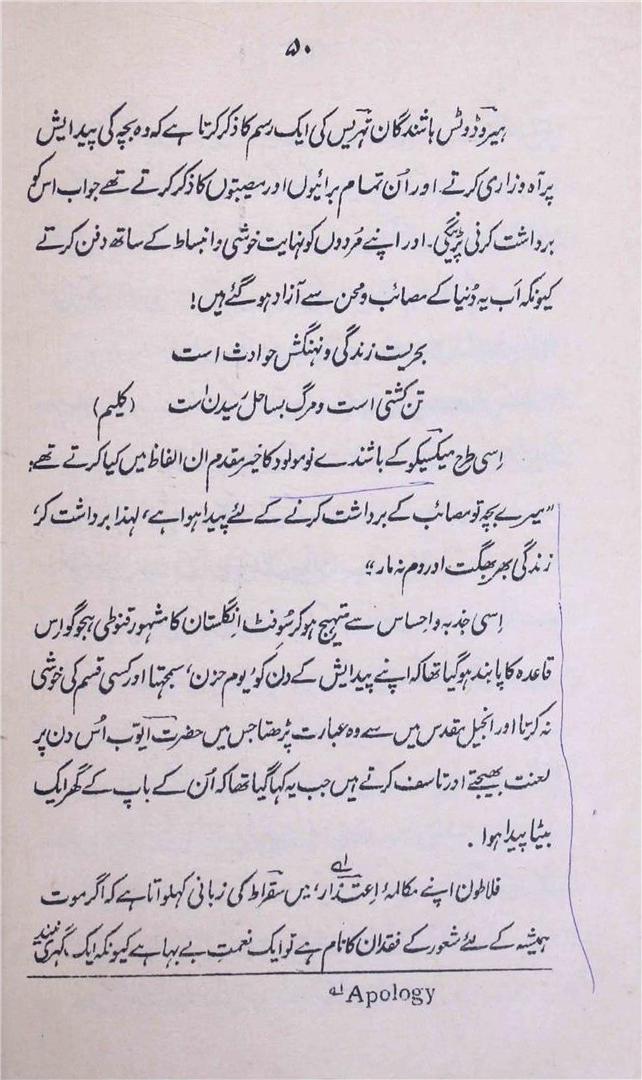 ۵۰
ہیروڈوٹس باشندگان تھریس کی ایک رسم کا ذکر کرتا ہے کہ وہ بچہ کی پیدایش
پر آہ و زاری کرتے۔ اور اُن تمام برائیوں اور مصیبتوں کا ذکر کرتے تھے جو اب اس کو
برداشت کرنی پڑینگی۔ اور اپنے مُردوں کو نہایت خوشی و انبساط کے ساتھ دفن کرتے
کیونکہ اَب یہ دُنیا کے مصائب و محن سے آزاد ہو گئے ہیں!
بحریست زندگی و نہنگش حوادث است
تن کشتی است و مرگ بساحل رسیدن است (کلیم)
اِسی طرح میکسیکو کے باشندے نومولود کا خیر مقدم ان الفاظ میں کیا کرتے تھے:
"میرے بچہ تو مصائب کے برداشت کرنے کے لئے پیدا ہوا ہے، لہٰذا برداشت کر،
زندگی بھر بھگت اور دم نہ مار"
اِسی جذبہ و احساس سے متہیج ہو کر سُوفٹ انگلستان کا مشہور قنوطی ہجو گو اِس
قاعدہ کا پابند ہو گیا تھا کہ اپنے پیدایش کے دن کو 'یوم حزن' سمجھتا اور کسی قسم کی خوشی
نہ کرتا اور انجیل مقدس میں سے وہ عبارت پڑھتا جس میں حضرت ایوّب اُس دن پر
لعنت بھیجتے اور تاسف کرتے ہیں جب یہ کہا گیا تھا کہ اُن کے باپ کے گھر ایک
بیٹا پیدا ہوا۔
فلاطون اپنے مکالمۂ 'اِعتذار' ؂۱ میں سقراط کی زبانی کہلواتا ہے کہ اگر موت
ہمیشہ کے لئے شعور کے فقدان کا نام ہے تو ایک نعمتِ بے بہا ہے کیونکہ ایک گہری نیند
؂۱ Apology